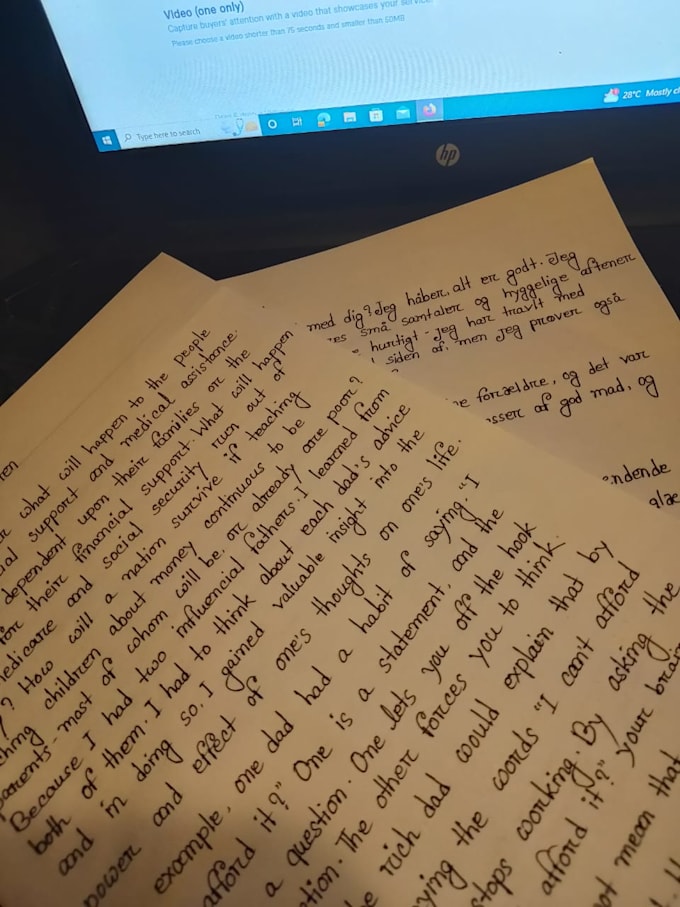 Video (one only)
Capture buyers' attention with a video that showcases your
Please choose a video shorter than 75 seconds and smaller than 50MB
Type here to search
28°C Mostly cl
hp
med dig? Jeg håber, alt er godt. Jeg
små samtaler og hyggelige aftener
hurtigt. Jeg har travlt med
siden af, men jeg prøver også
ne forældre, og det var
sser af god mad, og
ndende
glæ
ren
what will happen to the people
al support and medical assistance.
dependent upon their families or the
for their financial support. What will happen
edicare and social security run out of
y? How will a nation survive if teaching
ching children about money continuous to be
parents - most of whom will be, or already are poor?
Because I had two influencial fathers. I learned from
both of them. I had to think about each dad's advice
and in doing so, I gained valuable insight into the
power and effect of one's thoughts on one's life.
example, one dad had a habit of saying, "I
afford it?" One is a statement, and the
a question. One lets you off the hook
tion. The other forces you to think.
e rich dad would explain that by
ying the words "I can't afford
stops working. By asking the
afford it?" your brain
ot mean that